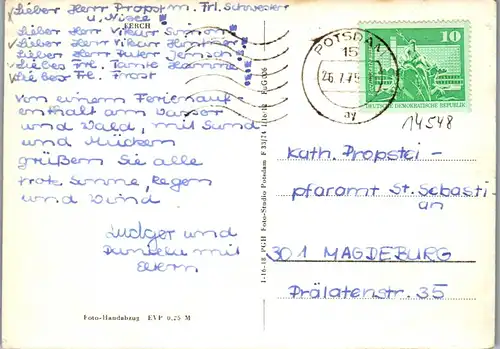 Lieber Herr Propst m. Frl. Schwester
u. Nisee!
FERCH
Lieber Herr Vikar
Lieber Herr Vikar
Lieber Herr Pater
Liebes Frl. Tante Hanne!
Liebes Frl. Frost
Von einem Ferienauf-
enthalt am Wasser
und Wald, mit Sand
und Mücken
grüßen Sie alle
trotz Sonne, Regen
und Wind
Ludger und
Daniela mit
Eltern
Foto-Handabzug EVP 0,25 M
I-16-18 PGH Foto-Studio Potsdam F 33/74
POTSDAM
15
26.7.75
ay
10
DEUTSCHE DEMOKRATISCHE REPUBLIK
14548
Kath. Propstei-
pfarramt St. Sebasti-
an
301 MAGDEBURG
Prälatenstr. 35